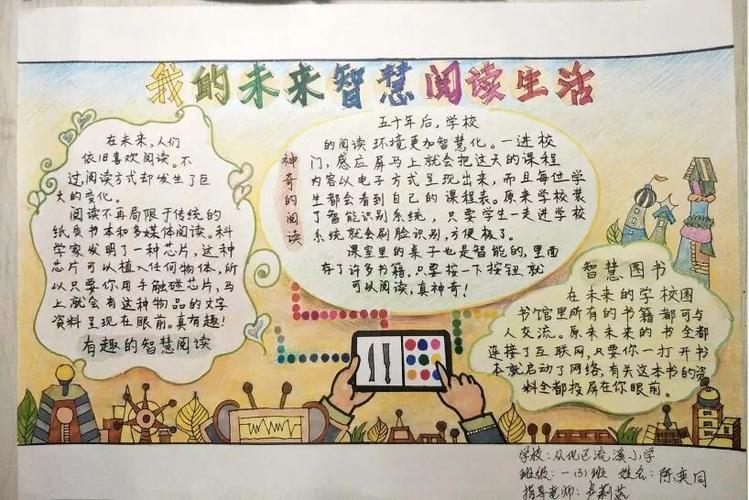 我的未来智慧阅读生活
在未来,人们
依旧喜欢阅读。不
过,阅读方式却发生了巨
大的变化。
阅读不再局限于传统的
纸质书本和多媒体阅读。科
学家发明了一种芯片,这种
芯片可以植入任何物体,所
以只要你用手触碰芯片,马
上就会有这种物品的文字
资料呈现在眼前,真有趣!
有趣的智慧阅读
神奇的阅读
五十年后,学校
的阅读环境更加智慧化。一进校
门,感应屏马上就会把这天的课程
内容以电子方式呈现出来,而且每位学
生都会看到自己的课程表。原来学校装
了智能识别系统,只要学生一走进学校
系统就会刷脸识别,方便极了。
课室里的桌子也是智能的,里面
存了许多书籍,只要按一下按钮,就
可以阅读,真神奇!
智慧图书
在未来的学校图
书馆里所有的书籍都可与
人交流。原来未来的书全都
连接了互联网,只要你一打开书
本就启动了网络,有关这本书的资
料全都投屏在你眼前。
学校:从化区流溪小学
班级:一(3)班 姓名:陈奕同
指导老师: